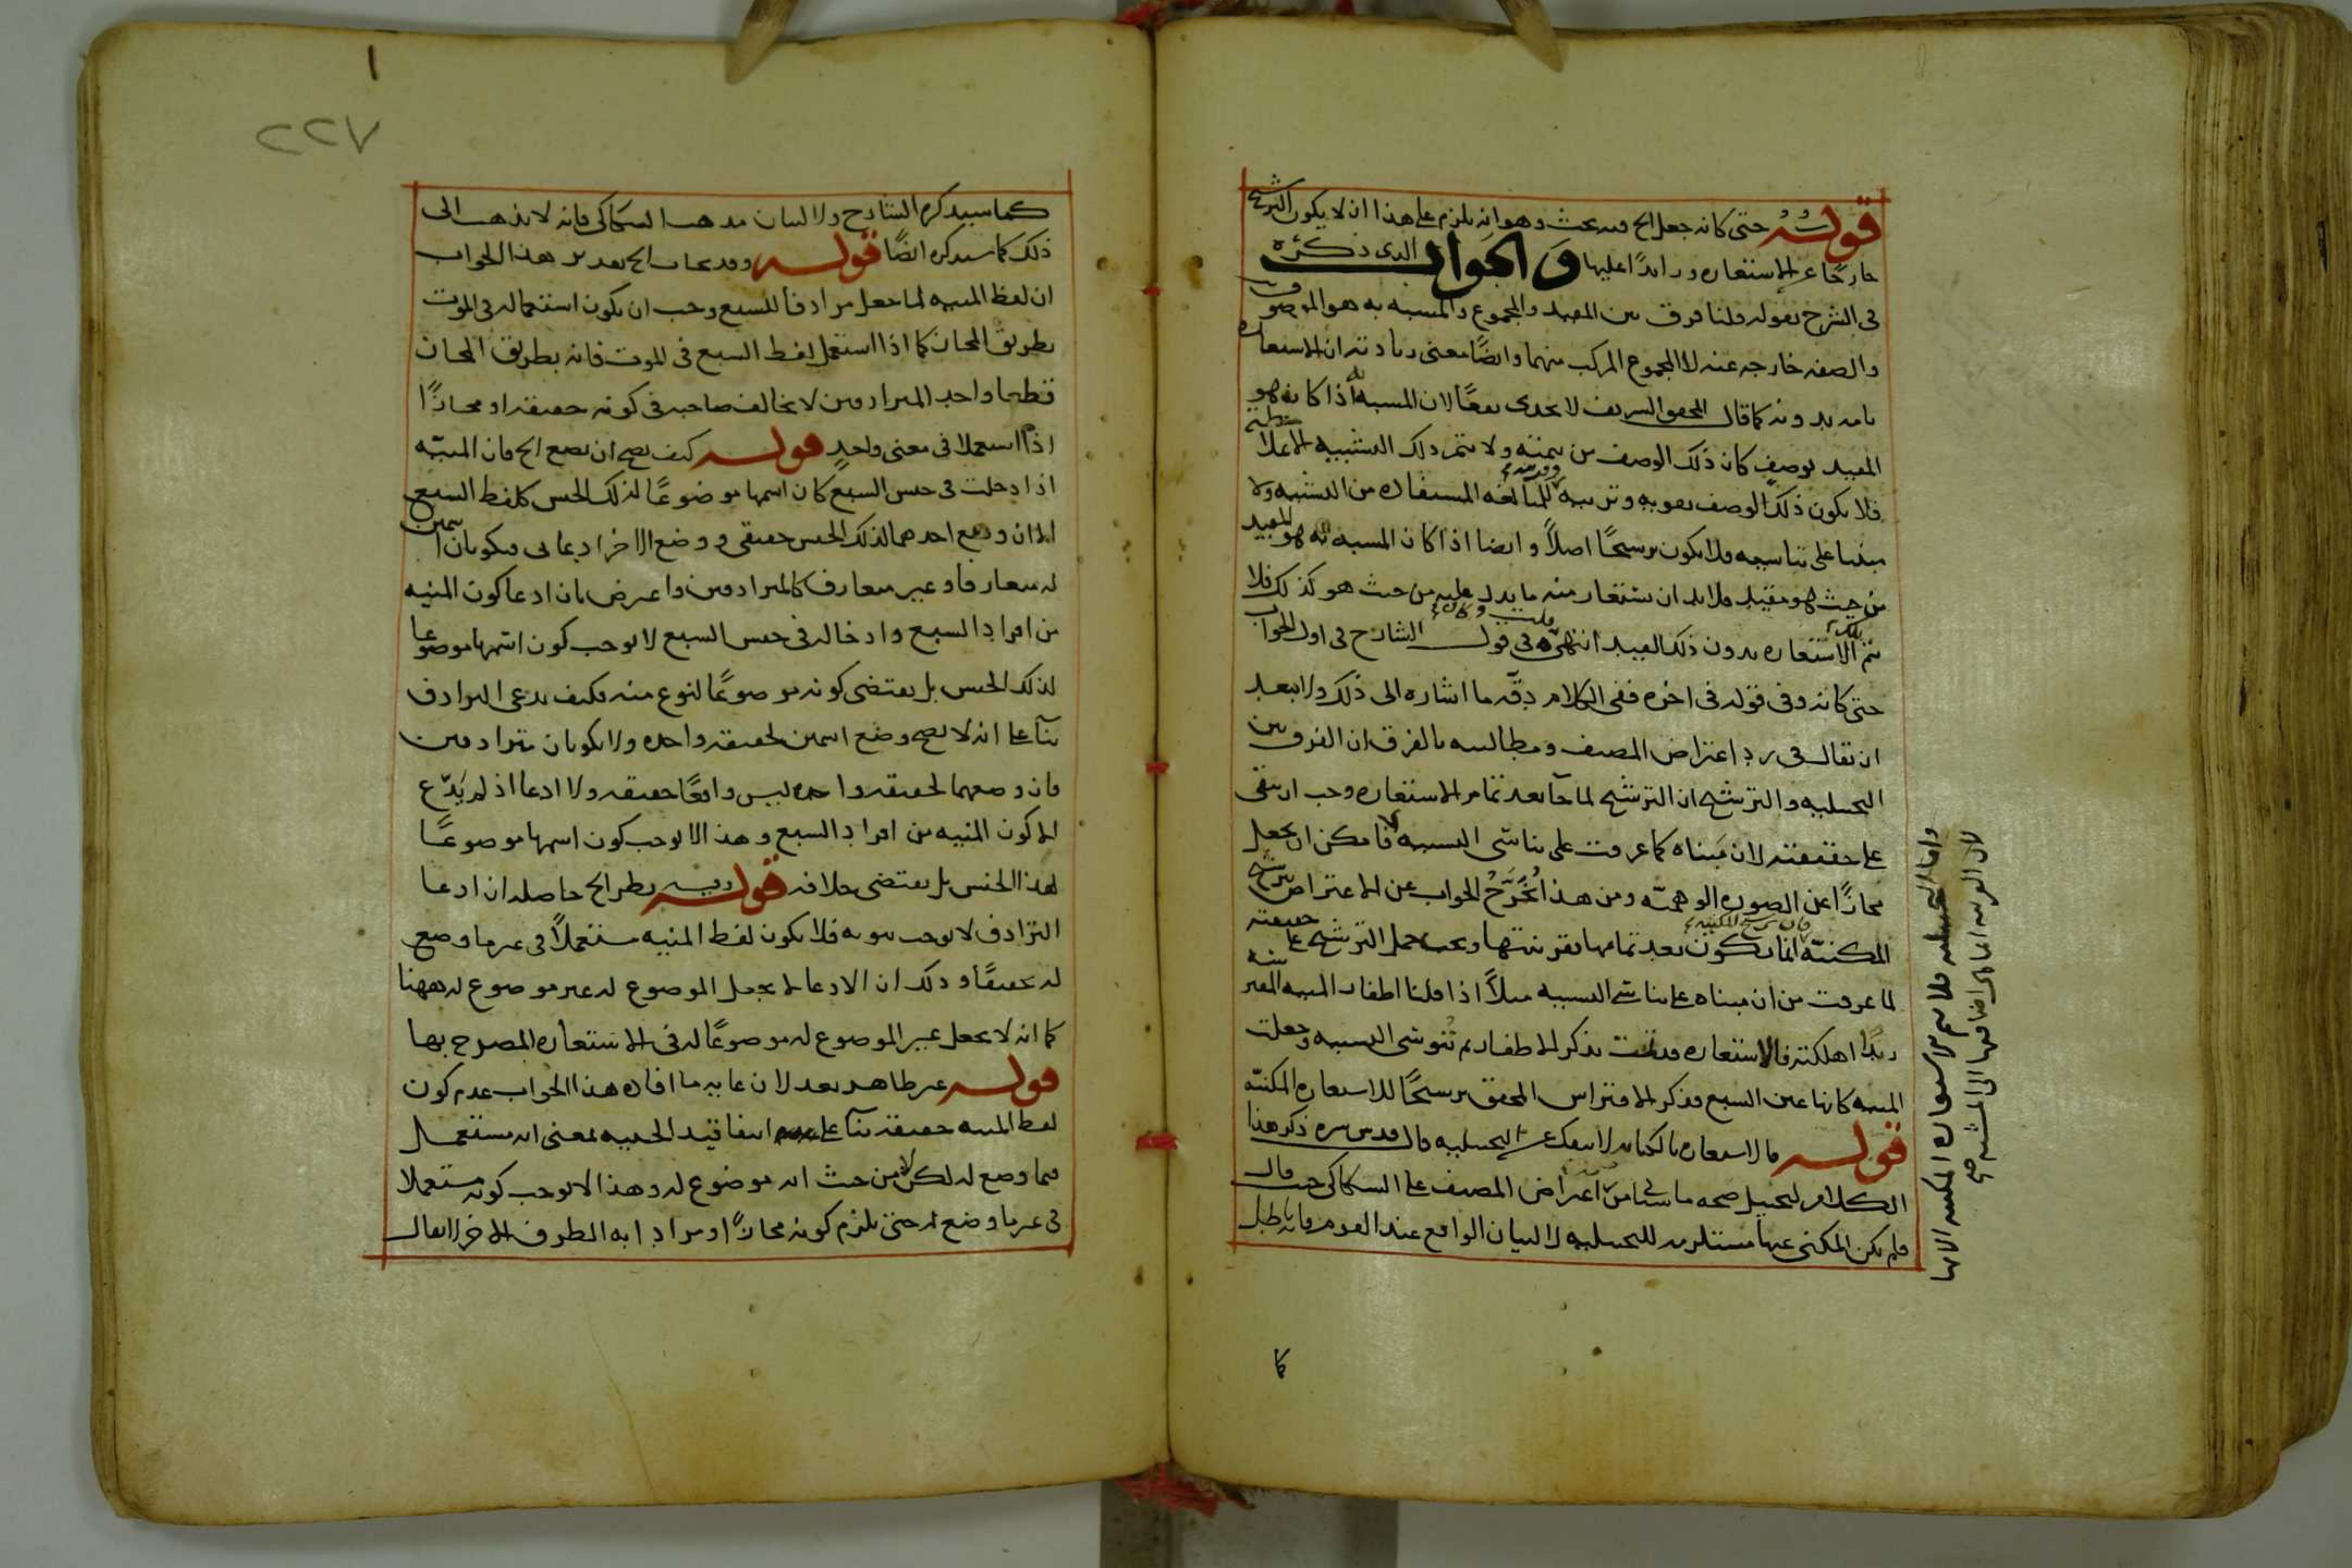 قوله حتى كانه جعل الخ فيه بحث وهو انه يلزم على هذا ان لا يكون الترشيح
خارجًا عن الاستعاره وزائدًا عليها والجواب الذى ذكره
فى الشرح بقوله قلنا فرق بين المقيد والمجموع والمشبه به هو الموصوف
والصفه خارجه عنه لا المجموع المركب منهما وايضًا معنى زيادته ان الاستعاره
تامه بدونه كما قال المحقق الشريف لا يجدى نفعًا لان المشبه به اذا كان هو
المقيد بوصف كان ذلك الوصف من تتمته ولا يتم ذلك التشبيه الا
فلا يكون ذلك الوصف تقويه وتربيه للمبالغه المستفاده من التشبيه ولا
مبنيا على تناسيه فلا يكون ترشيحًا اصلًا وايضا اذا كان المشبه به هو المقيد
من حيث هو مقيد فلا بد ان يستعار منه ما يدل عليه من حيث هو كذلك فلا
يتم الاستعاره بدون ذلك القيد انتهى فى قول الشارح فى اول الجواب
حتى كانه وفى قوله فى اخره ففى الكلام دقه ما اشاره الى ذلك ولا يبعد
ان يقال فى رد اعتراض المصنف ومطالبته بالفرق ان الفرق بين
التخييليه والترشيح ان الترشيح لما جآ بعد تمام الاستعاره وجب ان يبقى
على حقيقته لان مبناه كما عرفت على تناسى التشبيه فامكن ان يجعل
مجازًا عن الصوره الوهميّه ومن هذا يخرّج الجواب عن الاعتراض بترشيح
المكنيّه انما يكون بعد تمامها بقرينتها ويجب حمل الترشيح على حقيقته
لما عرفت من ان مبناه على تناسى التشبيه مثلًا اذا قلنا اظفار المنيه
زيدًا اهلكته فالاستعاره قد تمت بذكر الاظفار ثم تنوسى التشبيه وجعلت
المنيه كانها عين السبع فذكر الافتراس المحقق ترشيحًا للاستعاره المكنيّه
قوله فالاستعاره بالكنايه لا تنفك عن التخييليه قال قدس سره ذكر هذا
الكلام ليحصل صحه ما سياتى من اعتراض المصنف على السكاكى حيث قال
فلم يكن المكنى عنها مستلزمه للتخييليه لا لبيان الواقع عند القوم فانه باطل
كا
٢٢٧
كما سيذكره الشارح ولا لبيان مذهب السكاكى فانه لا يذهب الى
ذلك كما سيذكره ايضًا قوله وقد يجاب الخ تقدير هذا الجواب
ان لفظ المنيه لما جعل مرادفا للسبع وجب ان يكون استعماله فى الموت
بطريق المجاز كما اذا استعمل لفظ السبع فى الموت فانه بطريق المجاز
قطعا واحد المترادفين لا يخالف صاحبه فى كونه حقيقه او مجازًا
اذا استعملا فى معنى واحد قوله كيف يصح ان يضع الخ فان المنيّه
اذا دخلت فى جنس السبع كان اسمها موضوعًا لذلك الجنس كلفظ السبع
الا ان وضع احدهما لذلك الجنس حقيقى ووضع الاخر ادعايى فيكونان اسمين
له متعارفا وغير متعارف كالمترادفين واعترض بان ادعا كون المنيه
من افراد السبع وادخاله فى جنس السبع لا يوجب كون اسمها موضوعا
لذلك الجنس بل يقتضى كونه موضوعًا لنوع منه فكيف يدعى الترادف
بنآ على انه لا يصح وضع اسمين لحقيقه واحده ولا يكونان مترادفين
فان وضعهما لحقيقه واحده ليس واقعًا حقيقه ولا ادعا اذ لم يدّع
الا كون المنيه من افراد السبع وهذا لا يوجب كون اسمها موضوعًا
لهذا الجنس بل يقتضى خلافه قوله وفيه نظر الخ حاصله ان ادعا
الترادف لا يوجب ثبوته فلا يكون لفظ المنيه مستعملًا فى غير ما وضع
له تحقيقًا وذلك ان الادعا لا يجعل الموضوع له غير موضوع له ههنا
كما انه لا يجعل غير الموضوع له موضوعًا له فى الاستعاره المصرح بها
قوله غير ظاهر بعد لان غايه ما افاده هذا الجواب عدم كون
لفظ المنيه حقيقه بنآ على انتفا قيد الحيثيه بمعنى انه مستعمل
فيما وضع له لكن لا من حيث انه موضوع له وهذا لا يوجب كونه مستعملا
فى غير ما وضع له حتى يلزم كونه مجازًا ومرادا به الطرف الاخر